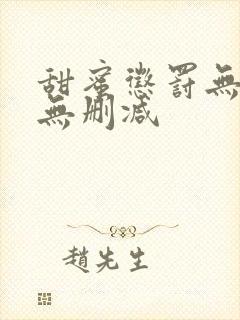 甜蜜懲罰無
無刪減
趙先生